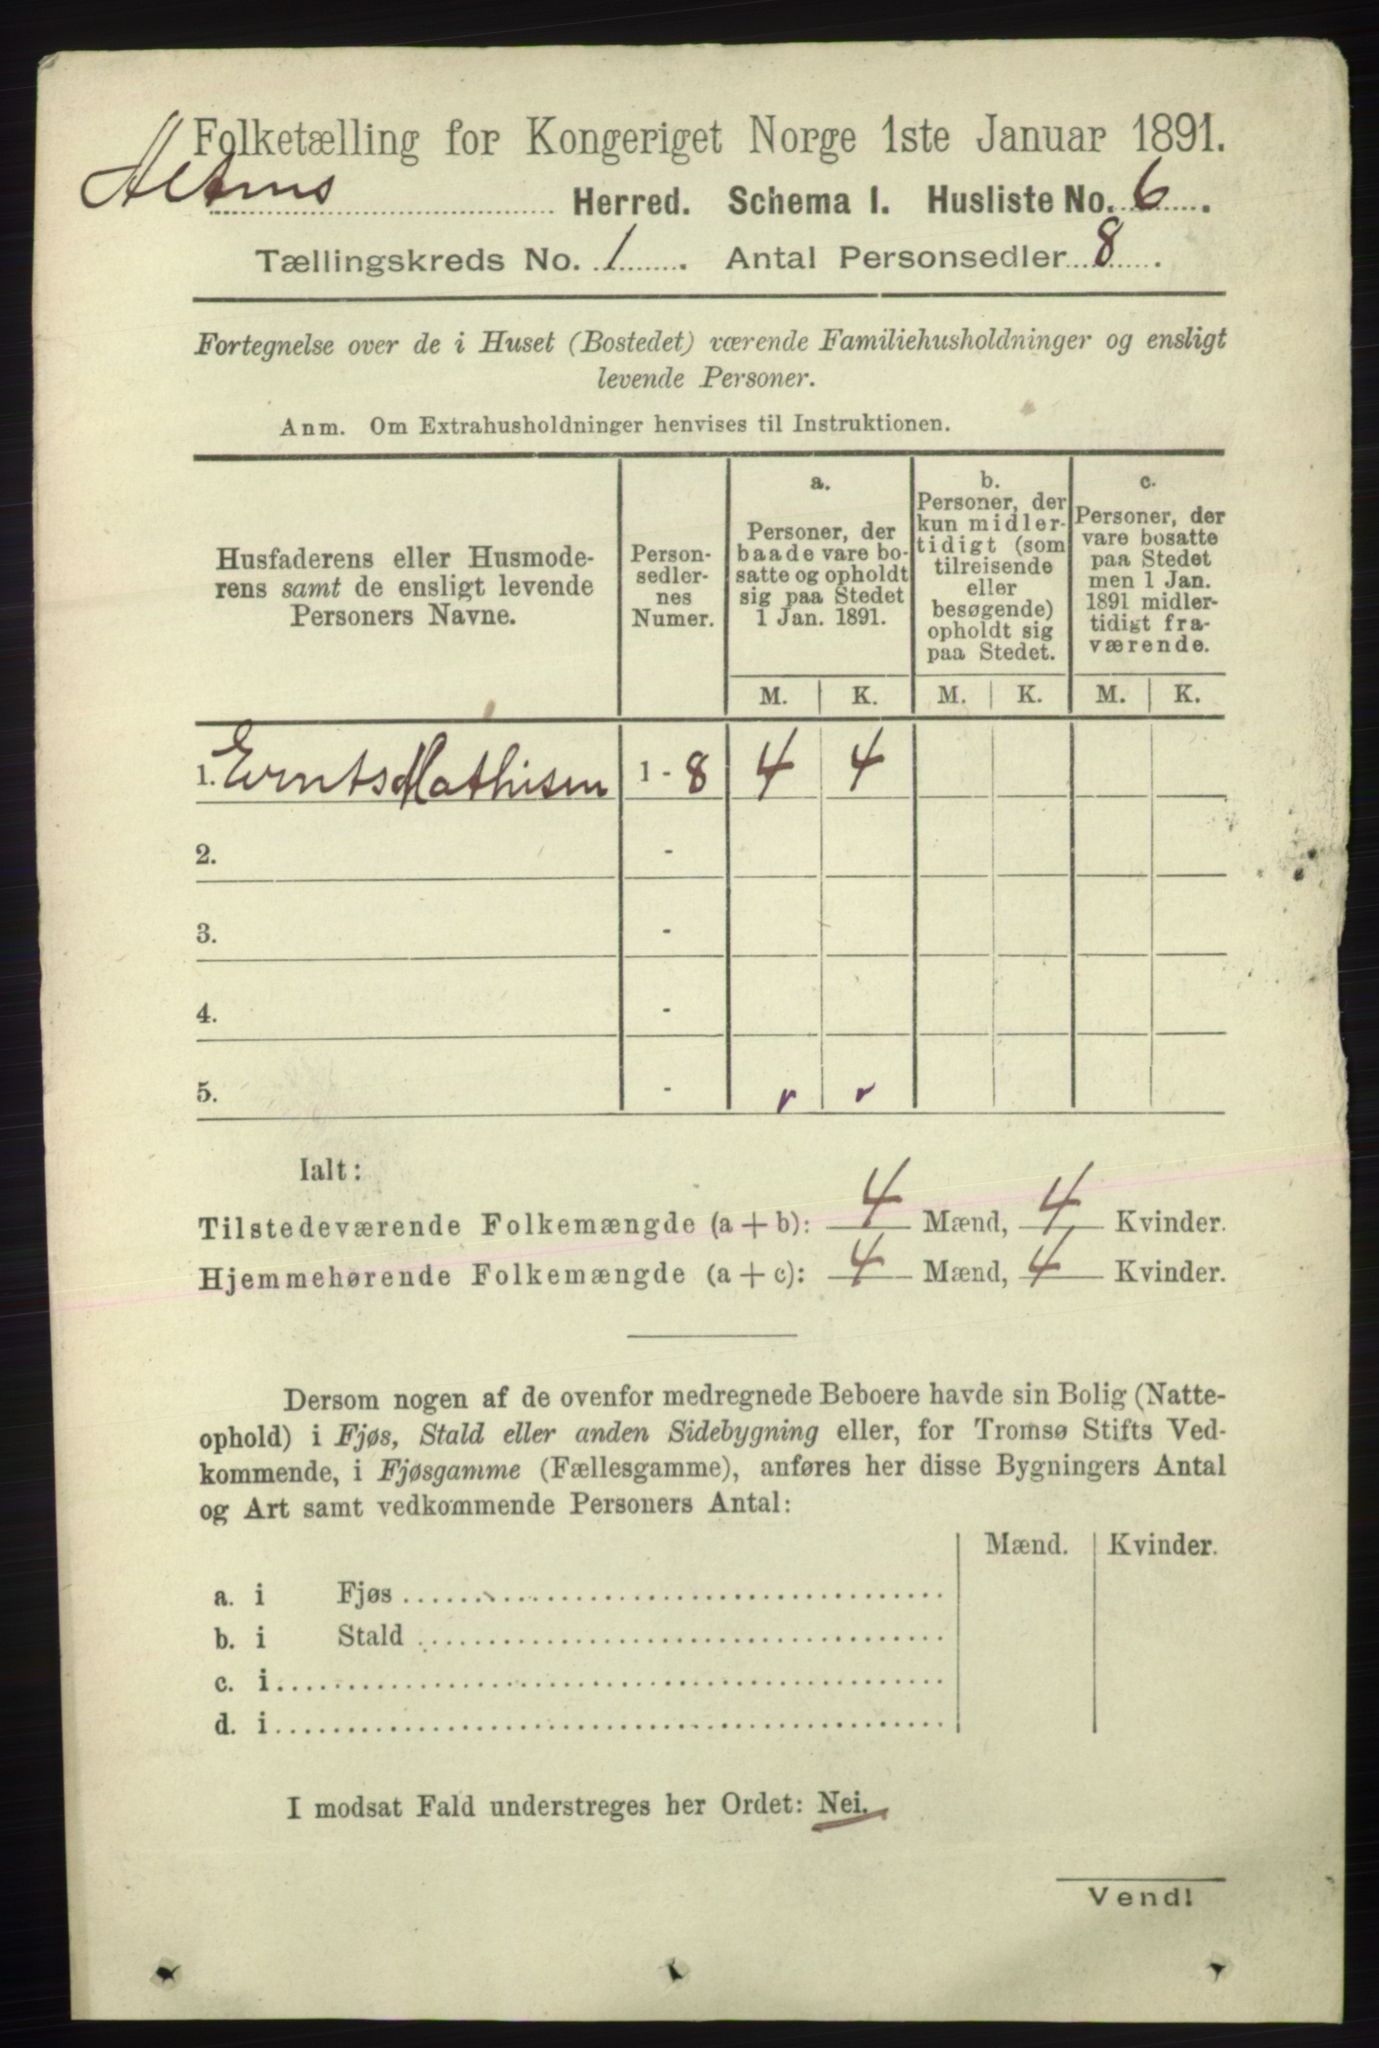 Folketælling for Kongeriget Norge 1ste Januar 1891.
Altens Herred. Schema I. Husliste No. 6.
Tællingskreds No. 1. Antal Personsedler 8.
Fortegnelse over de i Huset (Bostedet) værende Familiehusholdninger og ensligt
levende Personer.
Anm. Om Extrahusholdninger henvises til Instruktionen.
Husfaderens eller Husmode-
rens samt de ensligt levende
Personers Navne.
Person-
sedler-
nes
Numer.
a.
Personer, der
baade vare bo-
satte og opholdt
sig paa Stedet
1 Jan. 1891.
b.
Personer, der
kun midler-
tidigt (som
tilreisende
eller
besøgende)
opholdt sig
paa Stedet.
c.
Personer, der
vare bosatte
paa Stedet
men 1 Jan.
1891 midler-
tidigt fra-
værende.
M. K. M. K. M. K.
1. Ernts Mathisen 1 - 8 4 4
2. -
3. -
4. -
5. - r r
Ialt:
Tilstedeværende Folkemængde (a + b): 4 Mænd, 4 Kvinder.
Hjemmehørende Folkemængde (a + c): 4 Mænd, 4 Kvinder.
Dersom nogen af de ovenfor medregnede Beboere havde sin Bolig (Natte-
ophold) i Fjøs, Stald eller anden Sidebygning eller, for Tromsø Stifts Ved-
kommende, i Fjøsgamme (Fællesgamme), anføres her disse Bygningers Antal
og Art samt vedkommende Personers Antal:
Mænd. Kvinder.
a. i Fjøs
b. i Stald
c. i
d. i
I modsat Fald understreges her Ordet: Nei.
Vend!